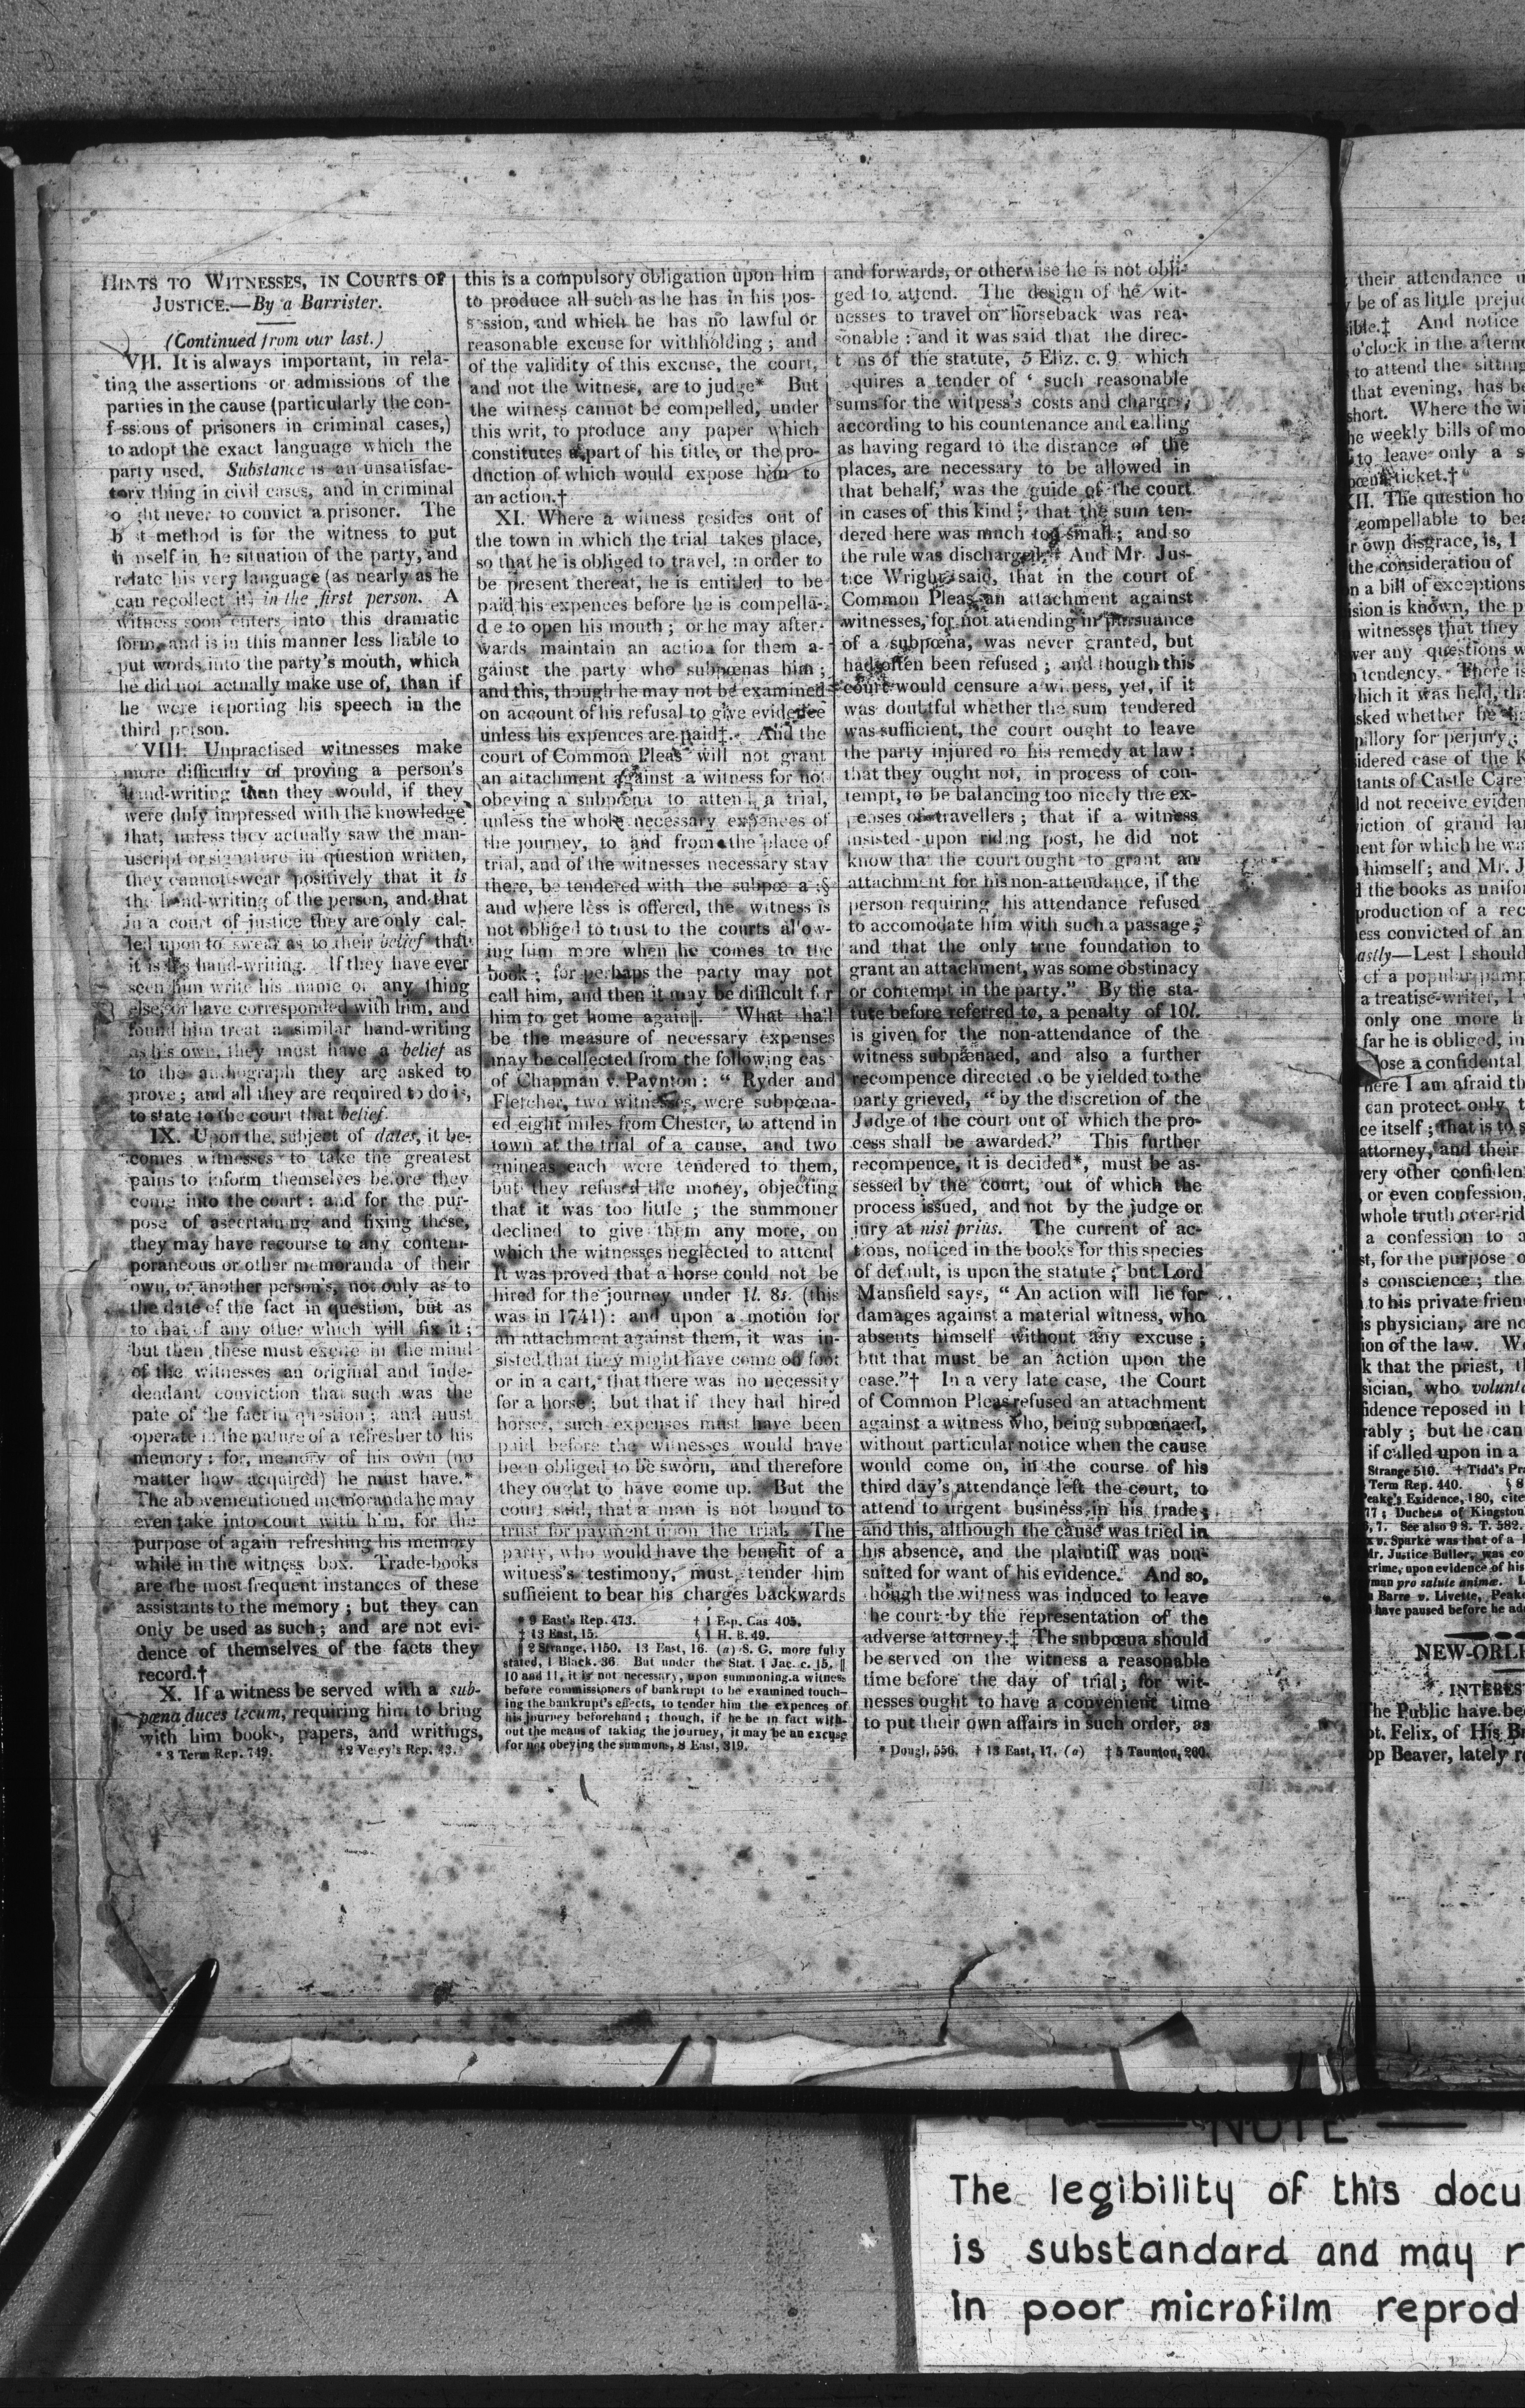 HINTS TO WITNESSES, IN COURTS OF
JUSTICE.—By a Barrister.
(Continued from our last.)
VII. It is always important, in rela-
ting the assertions or admissions of the
parties in the cause (particularly the con-
f ssions of prisoners in criminal cases,)
to adopt the exact language which the
party used. Substance is an unsatisfac-
tory thing in civil cases, and in criminal
o ght never to convict a prisoner. The
b st method is for the witness to put
h mself in he situation of the party, and
relate his very language (as nearly as he
can recollect it) in the first person. A
witness soon enters into this dramatic
form, and is in this manner less liable to
put words into the party's mouth, which
he did not actually make use of, than if
he were reporting his speech in the
third person.
VIII. Unpractised witnesses make
more difficulty of proving a person's
hand-writing than they would, if they
were duly impressed with the knowledge
that, unless they actually saw the man-
uscript or signature in question written,
they cannot swear positively that it is
the hand-writing of the person, and that
in a court of justice they are only cal-
led upon to swear as to their belief that
it is his hand-writing. If they have ever
seen him write his name or any thing
else, or have corresponded with him, and
found him treat a similar hand-writing
as his own, they must have a belief as
to the autograph they are asked to
prove; and all they are required to do is,
to state to the court that belief.
IX. Upon the subject of dates, it be-
comes witnesses to take the greatest
pains to inform themselves before they
come into the court: and for the pur-
pose of ascertaining and fixing these,
they may have recourse to any contem-
poraneous or other memoranda of their
own, or another person's, not only as to
the date of the fact in question, but as
to that of any other which will fix it;
but then these must excite in the mind
of the witnesses an original and inde-
dendant conviction that such was the
pate of the fact in question; and must
operate in the nature of a refresher to his
memory: for, memory of his own (no
matter how acquired) he must have.*
The abovementioned memoranda he may
even take into court with him, for the
purpose of again refreshing his memory
while in the witness box. Trade-books
are the most frequent instances of these
assistants to the memory; but they can
only be used as such; and are not evi-
dence of themselves of the facts they
record.†
X. If a witness be served with a sub-
pœna duces tecum, requiring him to bring
with him books, papers, and writings,
* 3 Term Rep. 749. †2 Vesey's Rep. 43.
this is a compulsory obligation upon him
to produce all such as he has in his pos-
s ssion, and which he has no lawful or
reasonable excuse for withholding; and
of the validity of this excuse, the court,
and not the witness, are to judge* But
the witness cannot be compelled, under
this writ, to produce any paper which
constitutes a part of his title, or the pro-
duction of which would expose him to
an action.†
XI. Where a witness resides out of
the town in which the trial takes place,
so that he is obliged to travel, in order to
be present thereat, he is entitled to be
paid his expences before he is compella-
d e to open his mouth; or he may after-
wards maintain an action for them a-
gainst the party who subpœnas him;
and this, though he may not be examined
on account of his refusal to give evidence
unless his expences are paid‡. And the
court of Common Pleas will not grant
an attachment against a witness for not
obeying a subpœna to attend a trial,
unless the whole necessary expences of
the journey, to and from the place of
trial, and of the witnesses necessary stay
there, be tendered with the subpœ a:§
and where less is offered, the witness is
not obliged to trust to the courts allow-
ing him more when he comes to the
book; for perhaps the party may not
call him, and then it may be difficult for
him to get home again‖. What shall
be the measure of necessary expenses
may be collected from the following cas
of Chapman v. Paynton: " Ryder and
Fletcher, two witnesses, were subpœna-
ed eight miles from Chester, to attend in
town at the trial of a cause, and two
guineas each were tendered to them,
but they refused the money, objecting
that it was too little; the summoner
declined to give them any more, on
which the witnesses neglected to attend
It was proved that a horse could not be
hired for the journey under 1l. 8s. (this
was in 1741): and upon a motion for
an attachment against them, it was in-
sisted that they might have come on foot
or in a cart, that there was no necessity
for a horse; but that if they had hired
horses, such expenses must have been
paid before the witnesses would have
been obliged to be sworn, and therefore
they ought to have come up. But the
court said, that a man is not bound to
trust for payment upon the trial. The
party, who would have the benefit of a
witness's testimony, must tender him
suffieient to bear his charges backwards
* 9 East's Rep. 473. † 1 Esp. Cas 405.
‡ 13 East, 15. § 1 H. B. 49.
‖ 2 Strange, 1150. 13 East, 16. (a) S. C. more fully
stated, 1 Black. 36. But under the Stat. 1 Jac. c. 15. ‖
10 and 11, it is not necessary, upon summoning a witness
before commissioners of bankrupt to be examined touch-
ing the bankrupt's effects, to tender him the expences of
his journey beforehand; though, if he be in fact with-
out the means of taking the journey, it may be an excuse
for not obeying the summons, 8 East, 319.
and forwards, or otherwise he is not obli-
ged to attend. The design of he wit-
nesses to travel on horseback was rea-
sonable: and it was said that the direc-
t ns of the statute, 5 Eliz. c. 9. which
quires a tender of ' such reasonable
sums for the witness's costs and charges,
according to his countenance and calling
as having regard to the distance of the
places, are necessary to be allowed in
that behalf,' was the guide of the court
in cases of this kind; that the sum ten-
dered here was much too small; and so
the rule was discharged. And Mr. Jus-
tice Wright said, that in the court of
Common Pleas an attachment against
witnesses, for not attending in pursuance
of a subpœna, was never granted, but
had often been refused; and though this
court would censure a witness, yet, if it
was doubtful whether the sum tendered
was sufficient, the court ought to leave
the party injured ro his remedy at law:
that they ought not, in process of con-
tempt, to be balancing too nicely the ex-
penses of travellers; that if a witness
insisted upon riding post, he did not
know that the court ought to grant an
attachment for his non-attendance, if the
person requiring his attendance refused
to accomodate him with such a passage;
and that the only true foundation to
grant an attachment, was some obstinacy
or contempt in the party." By the sta-
tute before referred to, a penalty of 10l.
is given for the non-attendance of the
witness subpænaed, and also a further
recompence directed to be yielded to the
party grieved, "by the discretion of the
Judge of the court out of which the pro-
cess shall be awarded." This further
recompence, it is decided*, must be as-
sessed by the court, out of which the
process issued, and not by the judge or
jury at nisi prius. The current of ac-
tions, noticed in the books for this species
of default, is upon the statute; but Lord
Mansfield says, "An action will lie for
damages against a material witness, who
absents himself without any excuse;
but that must be an action upon the
case."† In a very late case, the Court
of Common Pleas refused an attachment
against a witness who, being subpœnaed,
without particular notice when the cause
would come on, in the course of his
third day's attendance left the court, to
attend to urgent business in his trade;
and this, although the cause was tried in
his absence, and the plaintiff was non-
suited for want of his evidence. And so,
hough the witness was induced to leave
he court by the representation of the
adverse attorney.‡ The subpœna should
be served on the witness a reasonable
time before the day of trial; for wit-
nesses ought to have a convenient time
to put their own affairs in such order, as
* Dougl. 556. † 13 East, 17. (a) ‡ 5 Taunton, 260.
their attendance
be of as little preju
ible.‡ And notice
o'clock in the afterno
to attend the sitting
that evening, has be
short. Where the wi
he weekly bills of mo
to leave only a s
pœna ticket.†
XII. The question ho
compellable to bea
r own disgrace, is, I
the consideration of
n a bill of exceptions
ision is known, the p
witnesses that they
wer any questions w
tendency. There is
which it was held, tha
sked whether he
pillory for perjury;
idered case of the K
tants of Castle Care
ld not receive eviden
viction of grand lar
ent for which he wa
himself; and Mr. J
the books as unifor
production of a rec
ess convicted of an
astly—Lest I should
of a popular pamp
a treatise-writer, I
only one more h
far he is obliged, in
lose a confidental
here I am afraid th
can protect only t
ce itself; that is to s
attorney, and their
very other confiden
or even confession,
whole truth over-rid
a confession to a
st, for the purpose o
s conscience; the
to his private frien
is physician, are no
ion of the law. We
k that the priest, th
sician, who volunta
fidence reposed in h
rably; but he can
if called upon in a
Strange 510. † Tidd's Pra
Term Rep. 440. § 8
Peake's Evidence, 180, cite
77; Duchess of Kingston
6, 7. See also 9 S. T. 582.
x v. Sparke was that of a
Mr. Justice Buller, was co
crime, upon evidence of his
man pro salute animæ. L
Barre v. Livette, Peake
have paused before he ad
NEW-ORLE
INTERES
The Public have be
pt. Felix, of His Br
op Beaver, lately r
NOTE
The legibility of this docu
is substandard and may r
in poor microfilm reprod